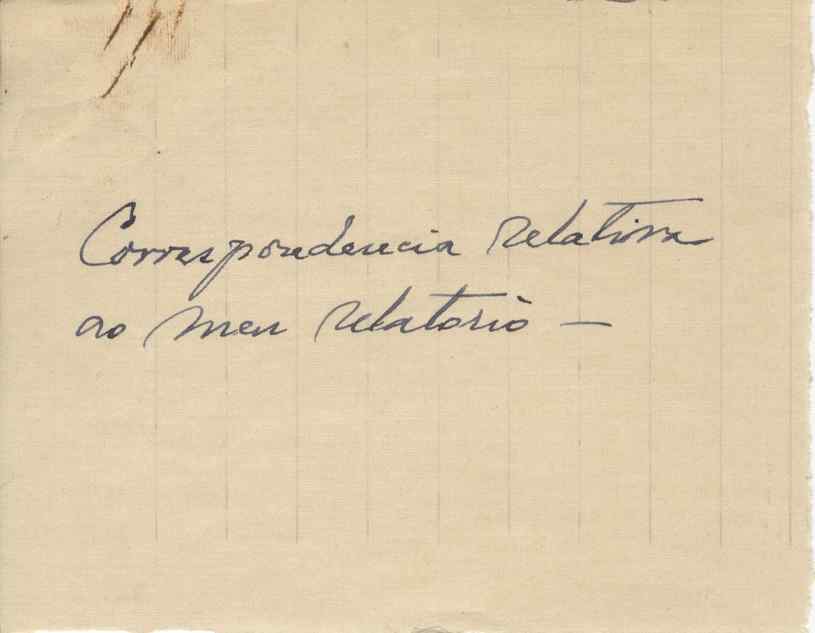 Correspondencia relativa
ao meu relatorio —